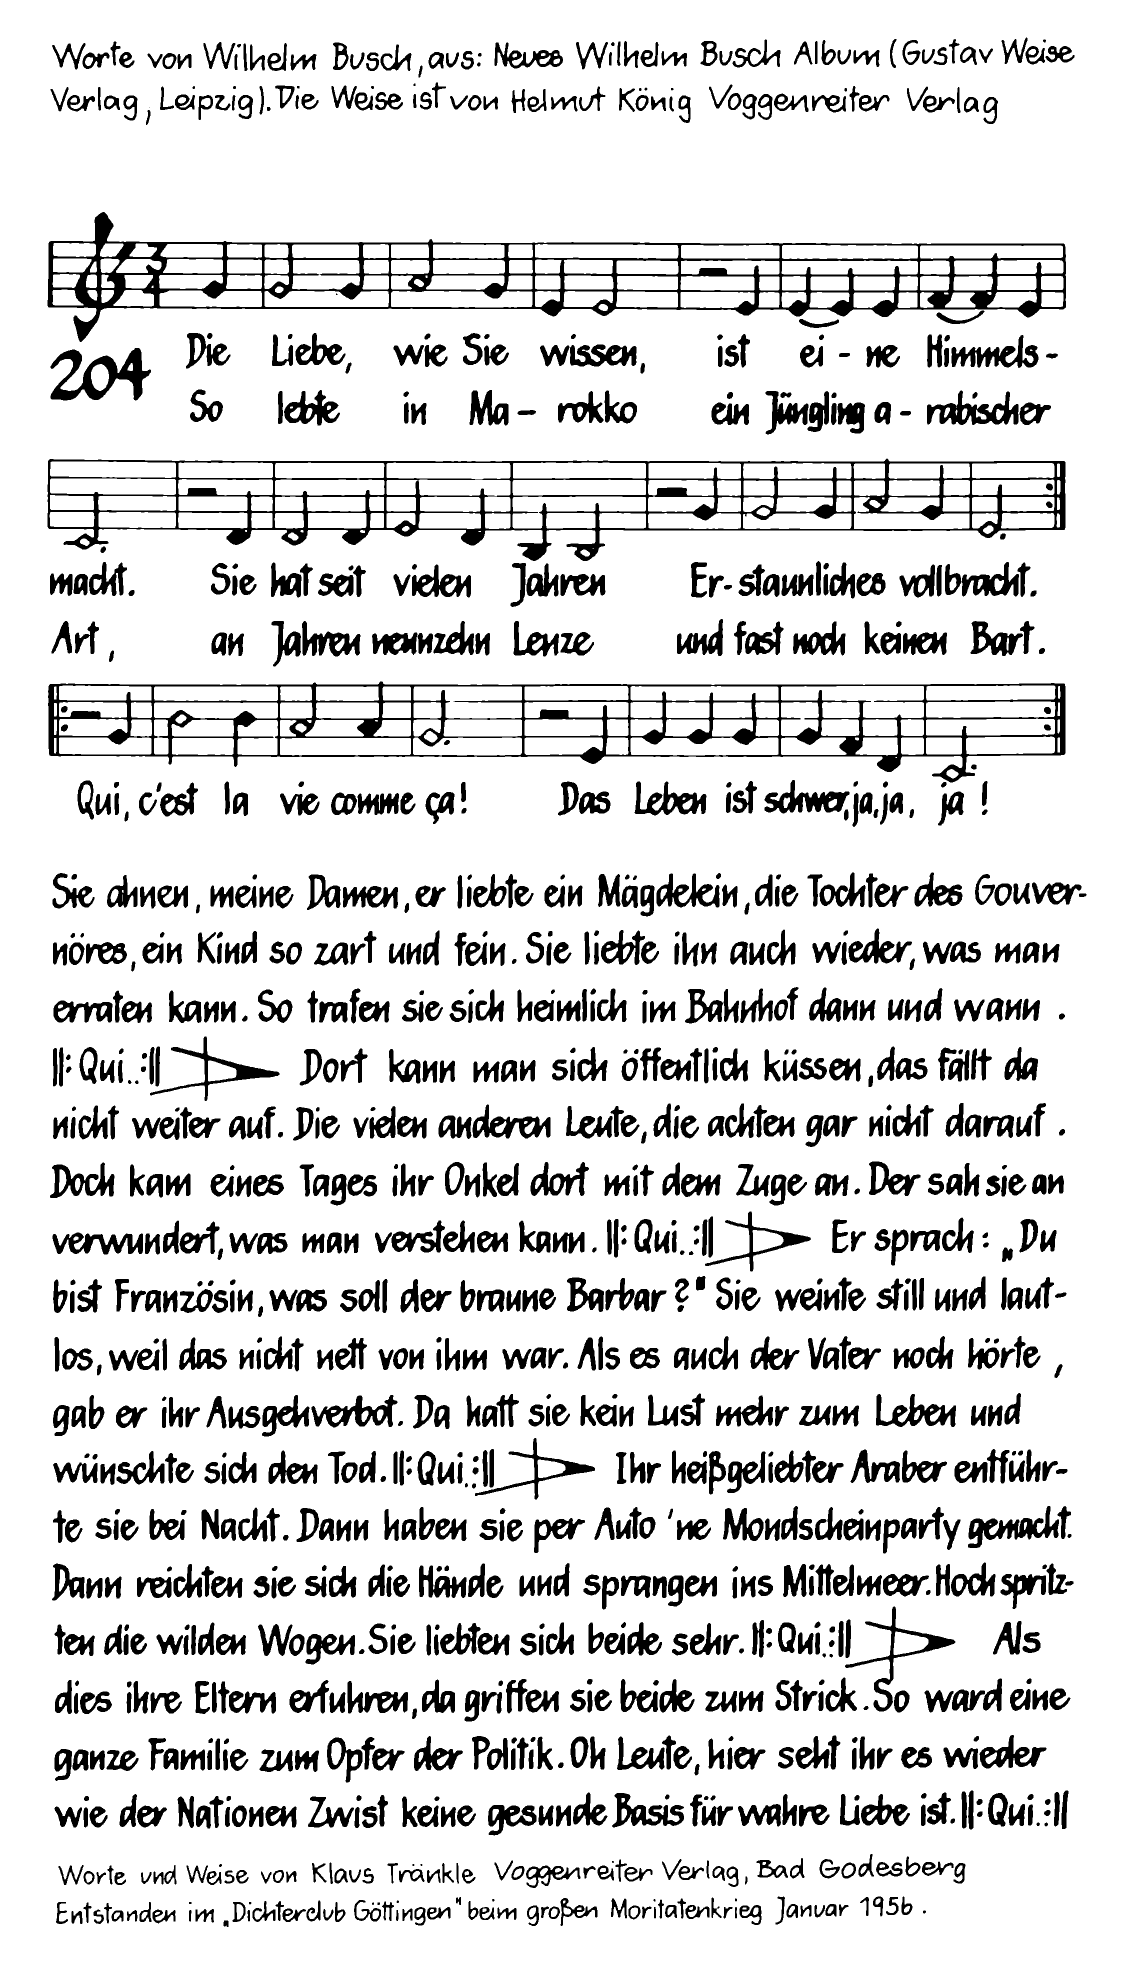 Worte von Wilhelm Busch, aus: Neues Wilhelm Busch Album (Gustav Weise
Verlag, Leipzig). Die Weise ist von Helmut König Voggenreiter Verlag
3
4
204
Die Liebe, wie Sie wissen, ist ei - ne Himmels-
So lebte in Ma - rokko ein Jüngling a - rabischer
macht. Sie hat seit vielen Jahren Er-staunliches vollbracht.
Art, an Jahren neunzehn Lenze und fast noch keinen Bart.
Qui, c'est la vie comme ça! Das Leben ist schwer, ja, ja, ja!
Sie ahnen, meine Damen, er liebte ein Mägdelein, die Tochter des Gouver-
nöres, ein Kind so zart und fein. Sie liebte ihn auch wieder, was man
erraten kann. So trafen sie sich heimlich im Bahnhof dann und wann.
||: Qui..:|| Dort kann man sich öffentlich küssen, das fällt da
nicht weiter auf. Die vielen anderen Leute, die achten gar nicht darauf.
Doch kam eines Tages ihr Onkel dort mit dem Zuge an. Der sah sie an
verwundert, was man verstehen kann. ||: Qui..:|| Er sprach: „Du
bist Französin, was soll der braune Barbar?" Sie weinte still und laut-
los, weil das nicht nett von ihm war. Als es auch der Vater noch hörte,
gab er ihr Ausgehverbot. Da hatt sie kein Lust mehr zum Leben und
wünschte sich den Tod. ||: Qui..:|| Ihr heißgeliebter Araber entführ-
te sie bei Nacht. Dann haben sie per Auto 'ne Mondscheinparty gemacht.
Dann reichten sie sich die Hände und sprangen ins Mittelmeer. Hoch spritz-
ten die wilden Wogen. Sie liebten sich beide sehr. ||: Qui..:|| Als
dies ihre Eltern erfuhren, da griffen sie beide zum Strick. So ward eine
ganze Familie zum Opfer der Politik. Oh Leute, hier seht ihr es wieder
wie der Nationen Zwist keine gesunde Basis für wahre Liebe ist. ||: Qui..:||
Worte und Weise von Klaus Tränkle Voggenreiter Verlag, Bad Godesberg
Entstanden im „Dichterclub Göttingen" beim großen Moritatenkrieg Januar 1956.